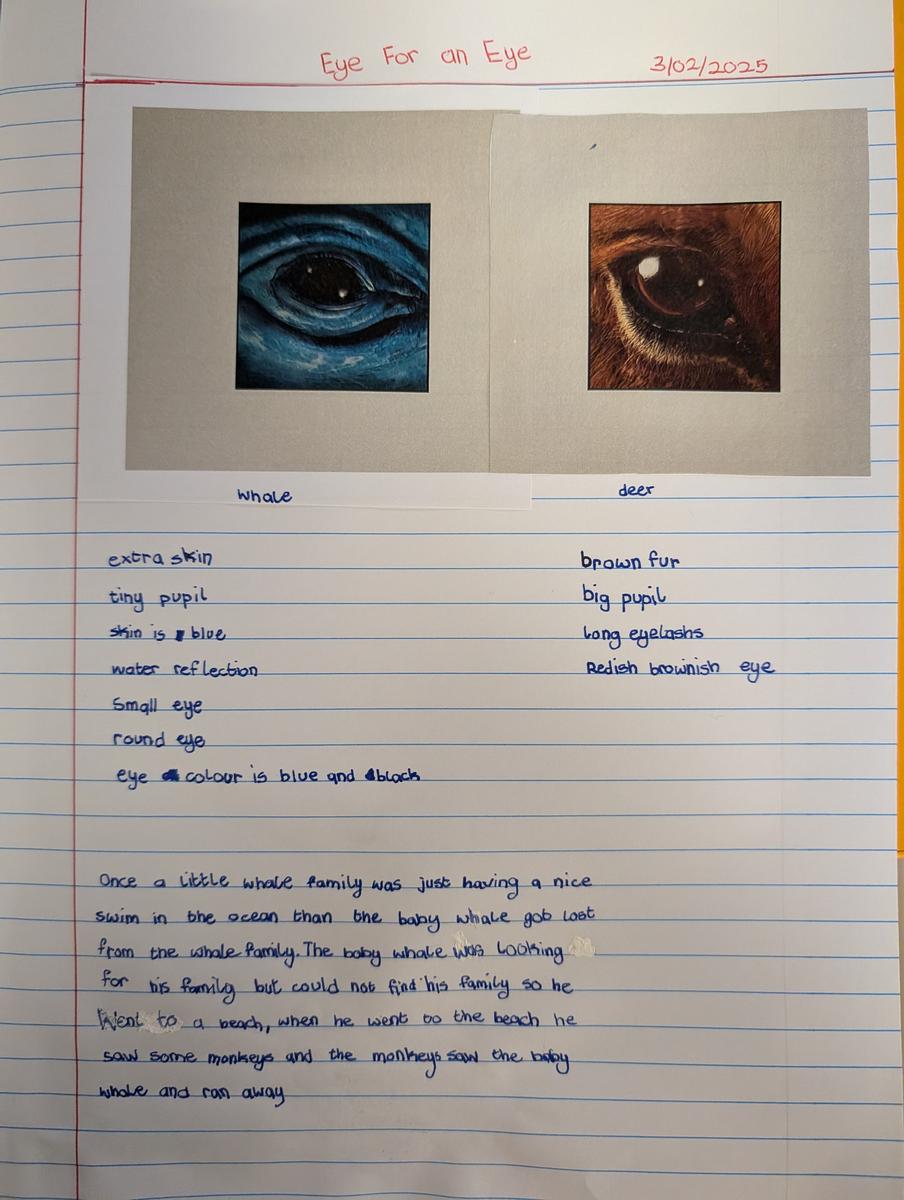 Eye For an Eye
3/02/2025
whale
deer
extra skin
tiny pupil
skin is blue
water reflection
Small eye
round eye
eye colour is blue and black
brown fur
big pupil
Long eyelashs
Redish brownish eye
Once a little whale family was just having a nice
swim in the ocean than the baby whale got lost
from the whale family. The baby whale was looking
for his family but could not find his family so he
Went to a beach, when he went to the beach he
saw some monkeys and the monkeys saw the baby
whale and ran away